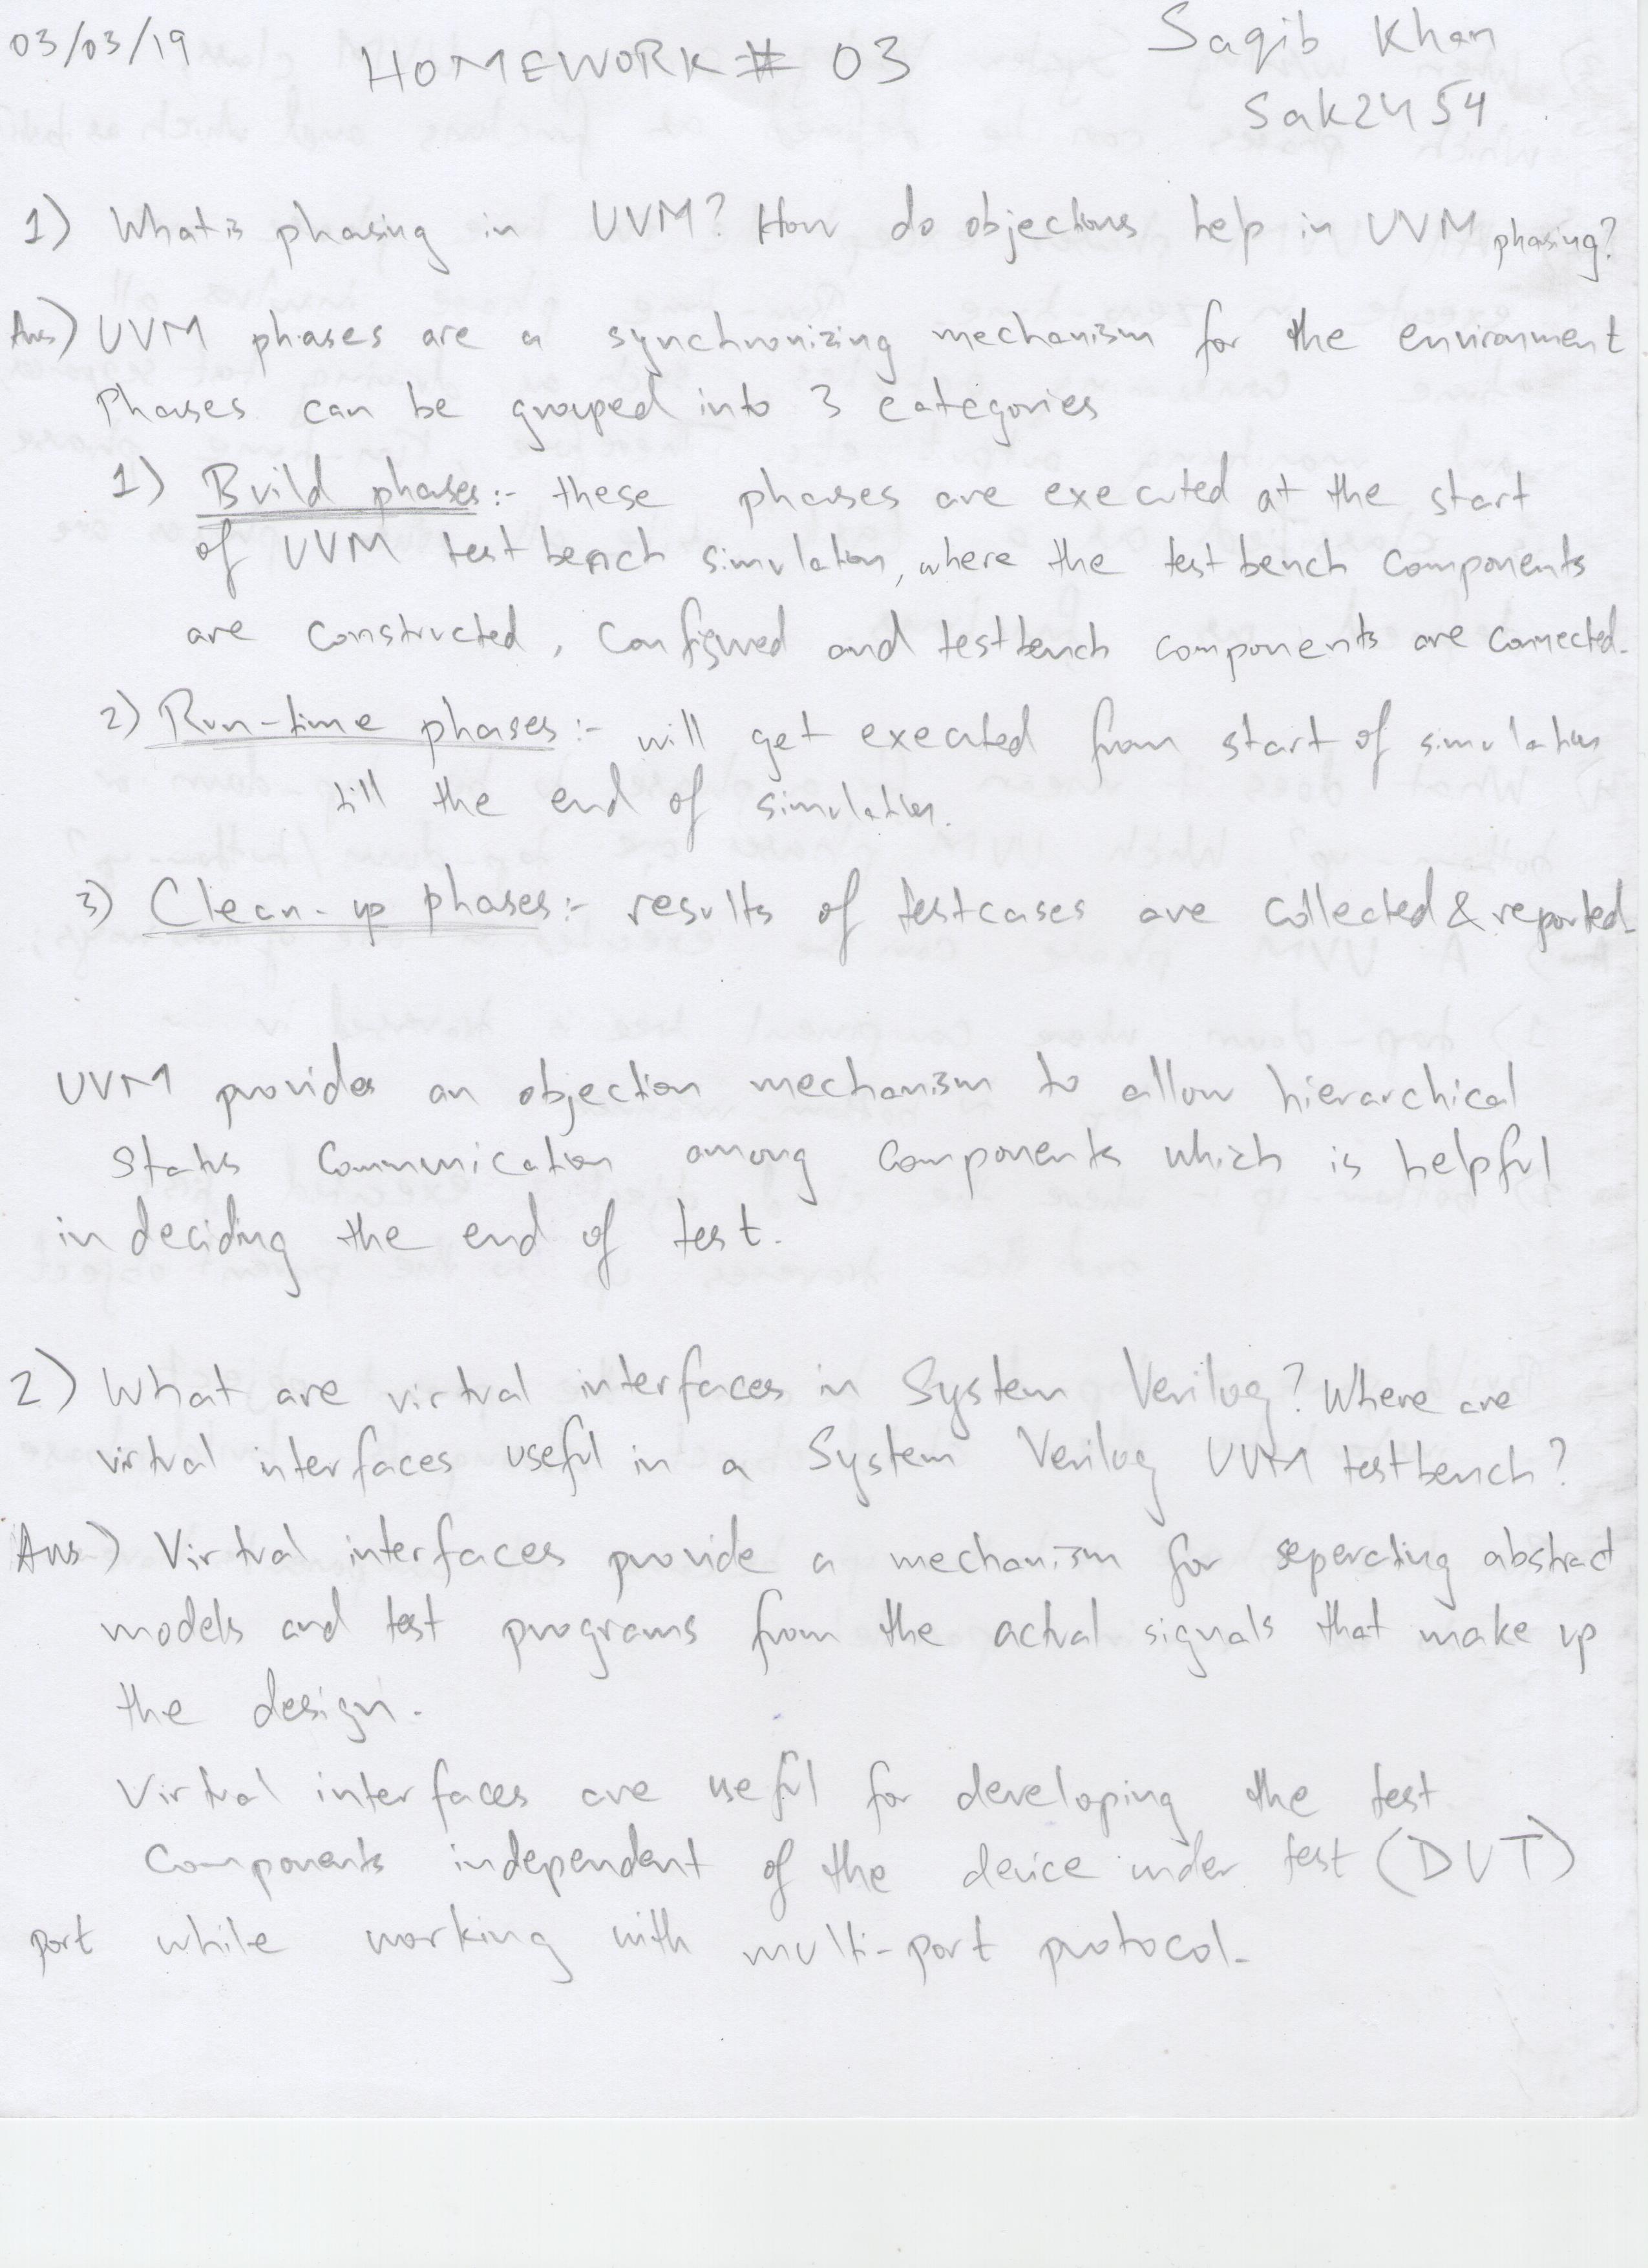 03/03/19
HOMEWORK # 03
Saqib Khan
Sak2454
1) What is phasing in UVM? How do objections help in UVM phasing?
Ans) UVM phases are a synchronizing mechanism for the environment
Phases can be grouped into 3 categories
1) Build phases:- these phases are executed at the start
of UVM testbench simulation, where the testbench components
are constructed, configured and testbench components are connected.
2) Run-time phases:- will get executed from start of simulation
till the end of simulation.
3) Clean-up phases:- results of testcases are collected & reported.
UVM provides an objection mechanism to allow hierarchical
status communication among components which is helpful
in deciding the end of test.
2) What are virtual interfaces in System Verilog? Where are
virtual interfaces useful in a System Verilog UVM testbench?
Ans) Virtual interfaces provide a mechanism for seperating abstract
models and test programs from the actual signals that make up
the design.
Virtual interfaces are useful for developing the test
components independent of the device under test (DUT)
port while working with multi-port protocol.